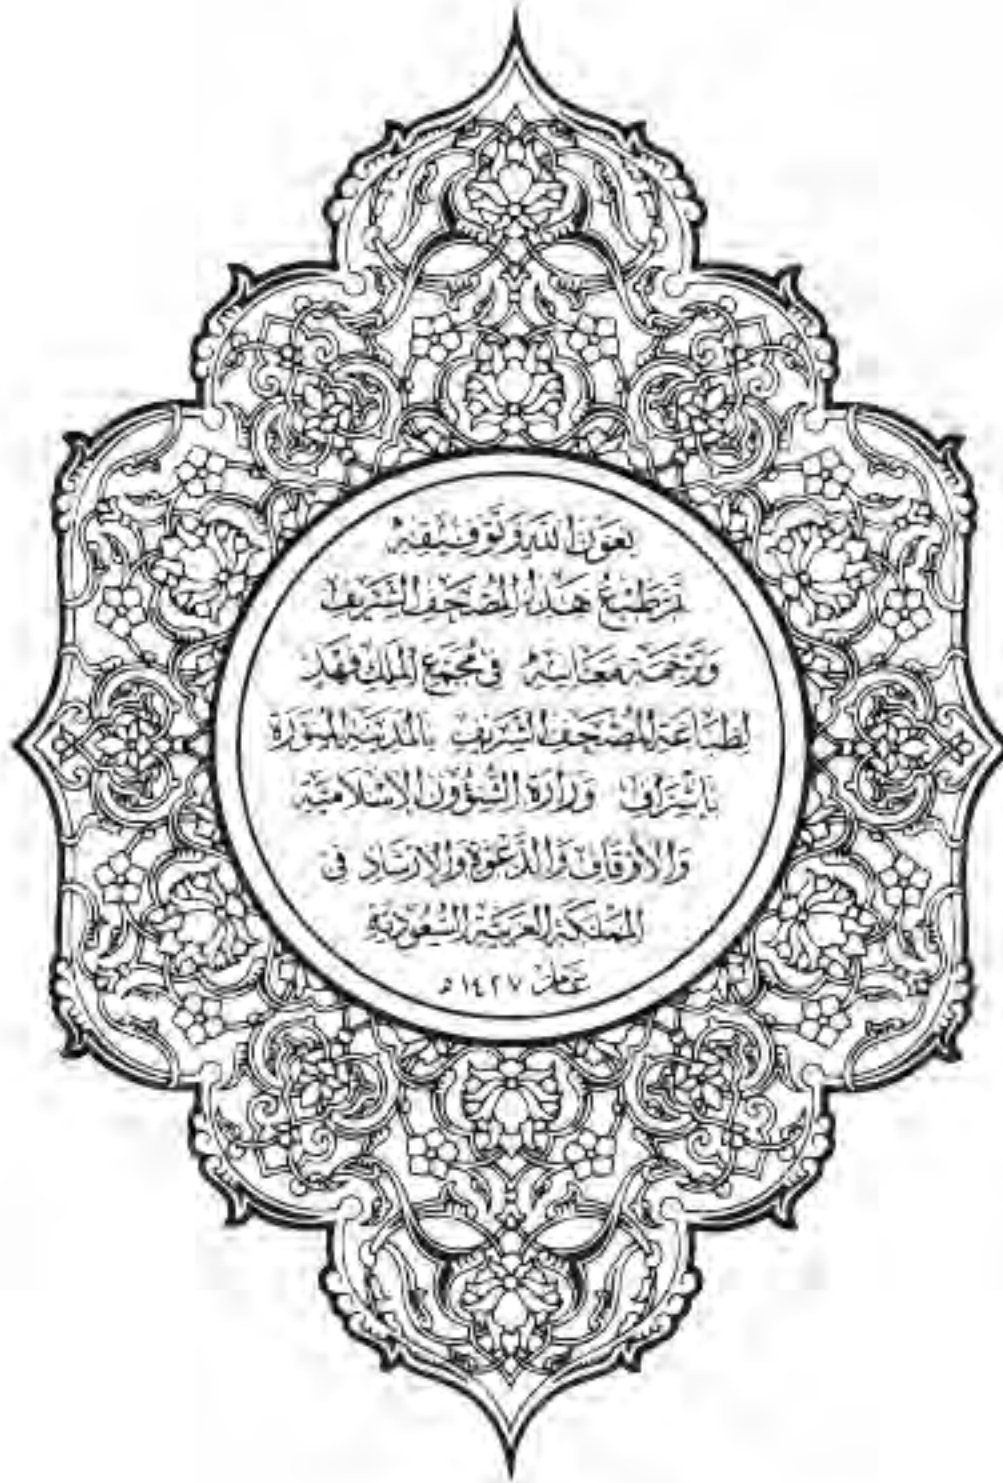 بعون الله وتوفيقه
تم طبع هذا المصحف الشريف
وترجمة معانيه في مجمع الملك فهد
لطباعة المصحف الشريف بالمدينة المنورة
بإشراف وزارة الشؤون الإسلامية
والأوقاف والدعوة والإرشاد في
المملكة العربية السعودية
عام ١٤٢٧ ه